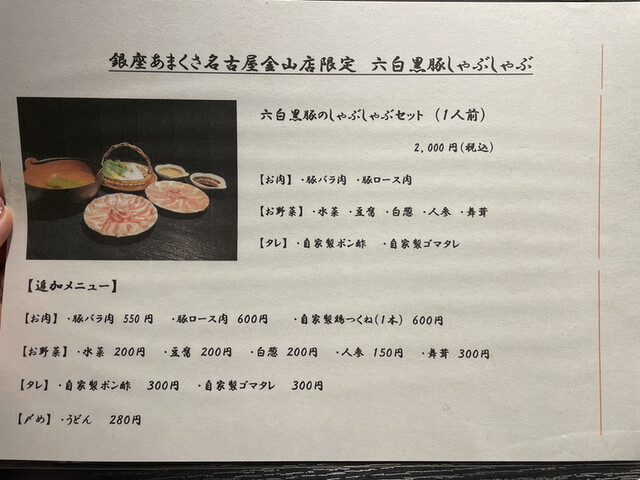 銀座あまくさ名古屋金山店限定 六白黒豚しゃぶしゃぶ
六白黒豚のしゃぶしゃぶセット (1人前)
2,000円(税込)
【お肉】・豚バラ肉 ・豚ロース肉
【お野菜】・水菜 ・豆腐 ・白葱 ・人参 ・舞茸
【タレ】・自家製ポン酢 ・自家製ゴマタレ
【追加メニュー】
【お肉】・豚バラ肉 550円 ・豚ロース肉 600円 ・自家製鶏つくね(1本) 600円
【お野菜】・水菜 200円 ・豆腐 200円 ・白葱 200円 ・人参 150円 ・舞茸 300円
【タレ】・自家製ポン酢 300円 ・自家製ゴマタレ 300円
【〆め】・うどん 280円